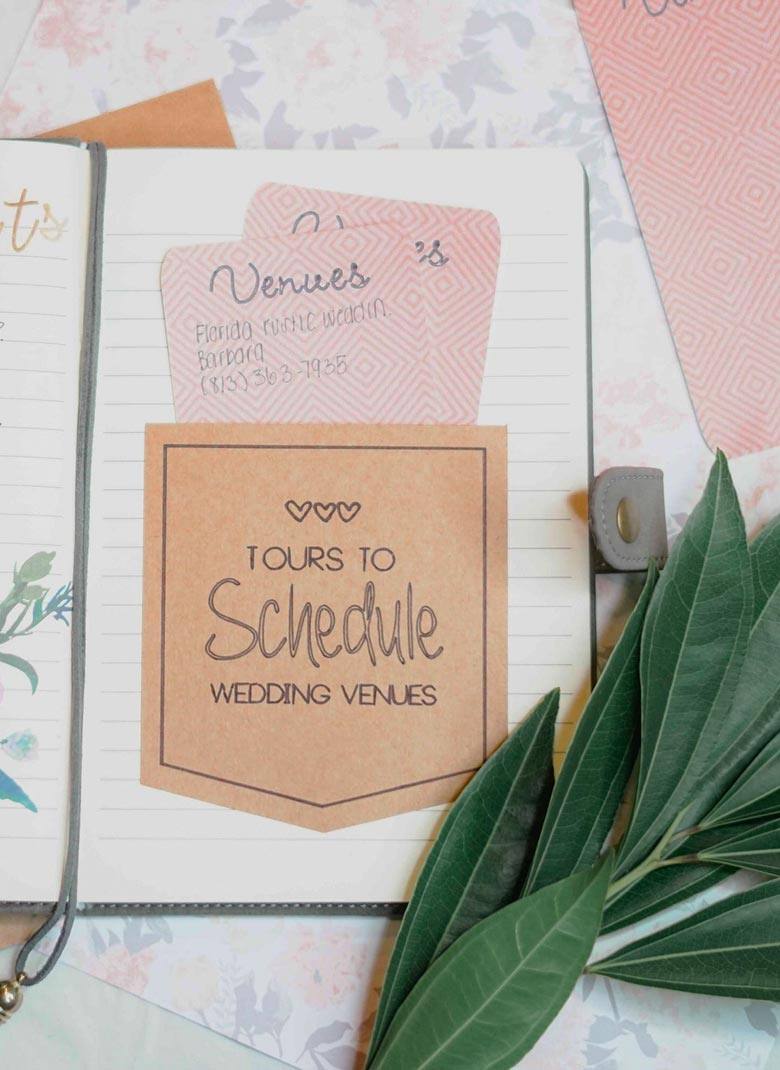 ts
's
Venues
Florida rustic weddin.
Barbara
(813) 363-7935
TOURS TO
Schedule
WEDDING VENUES